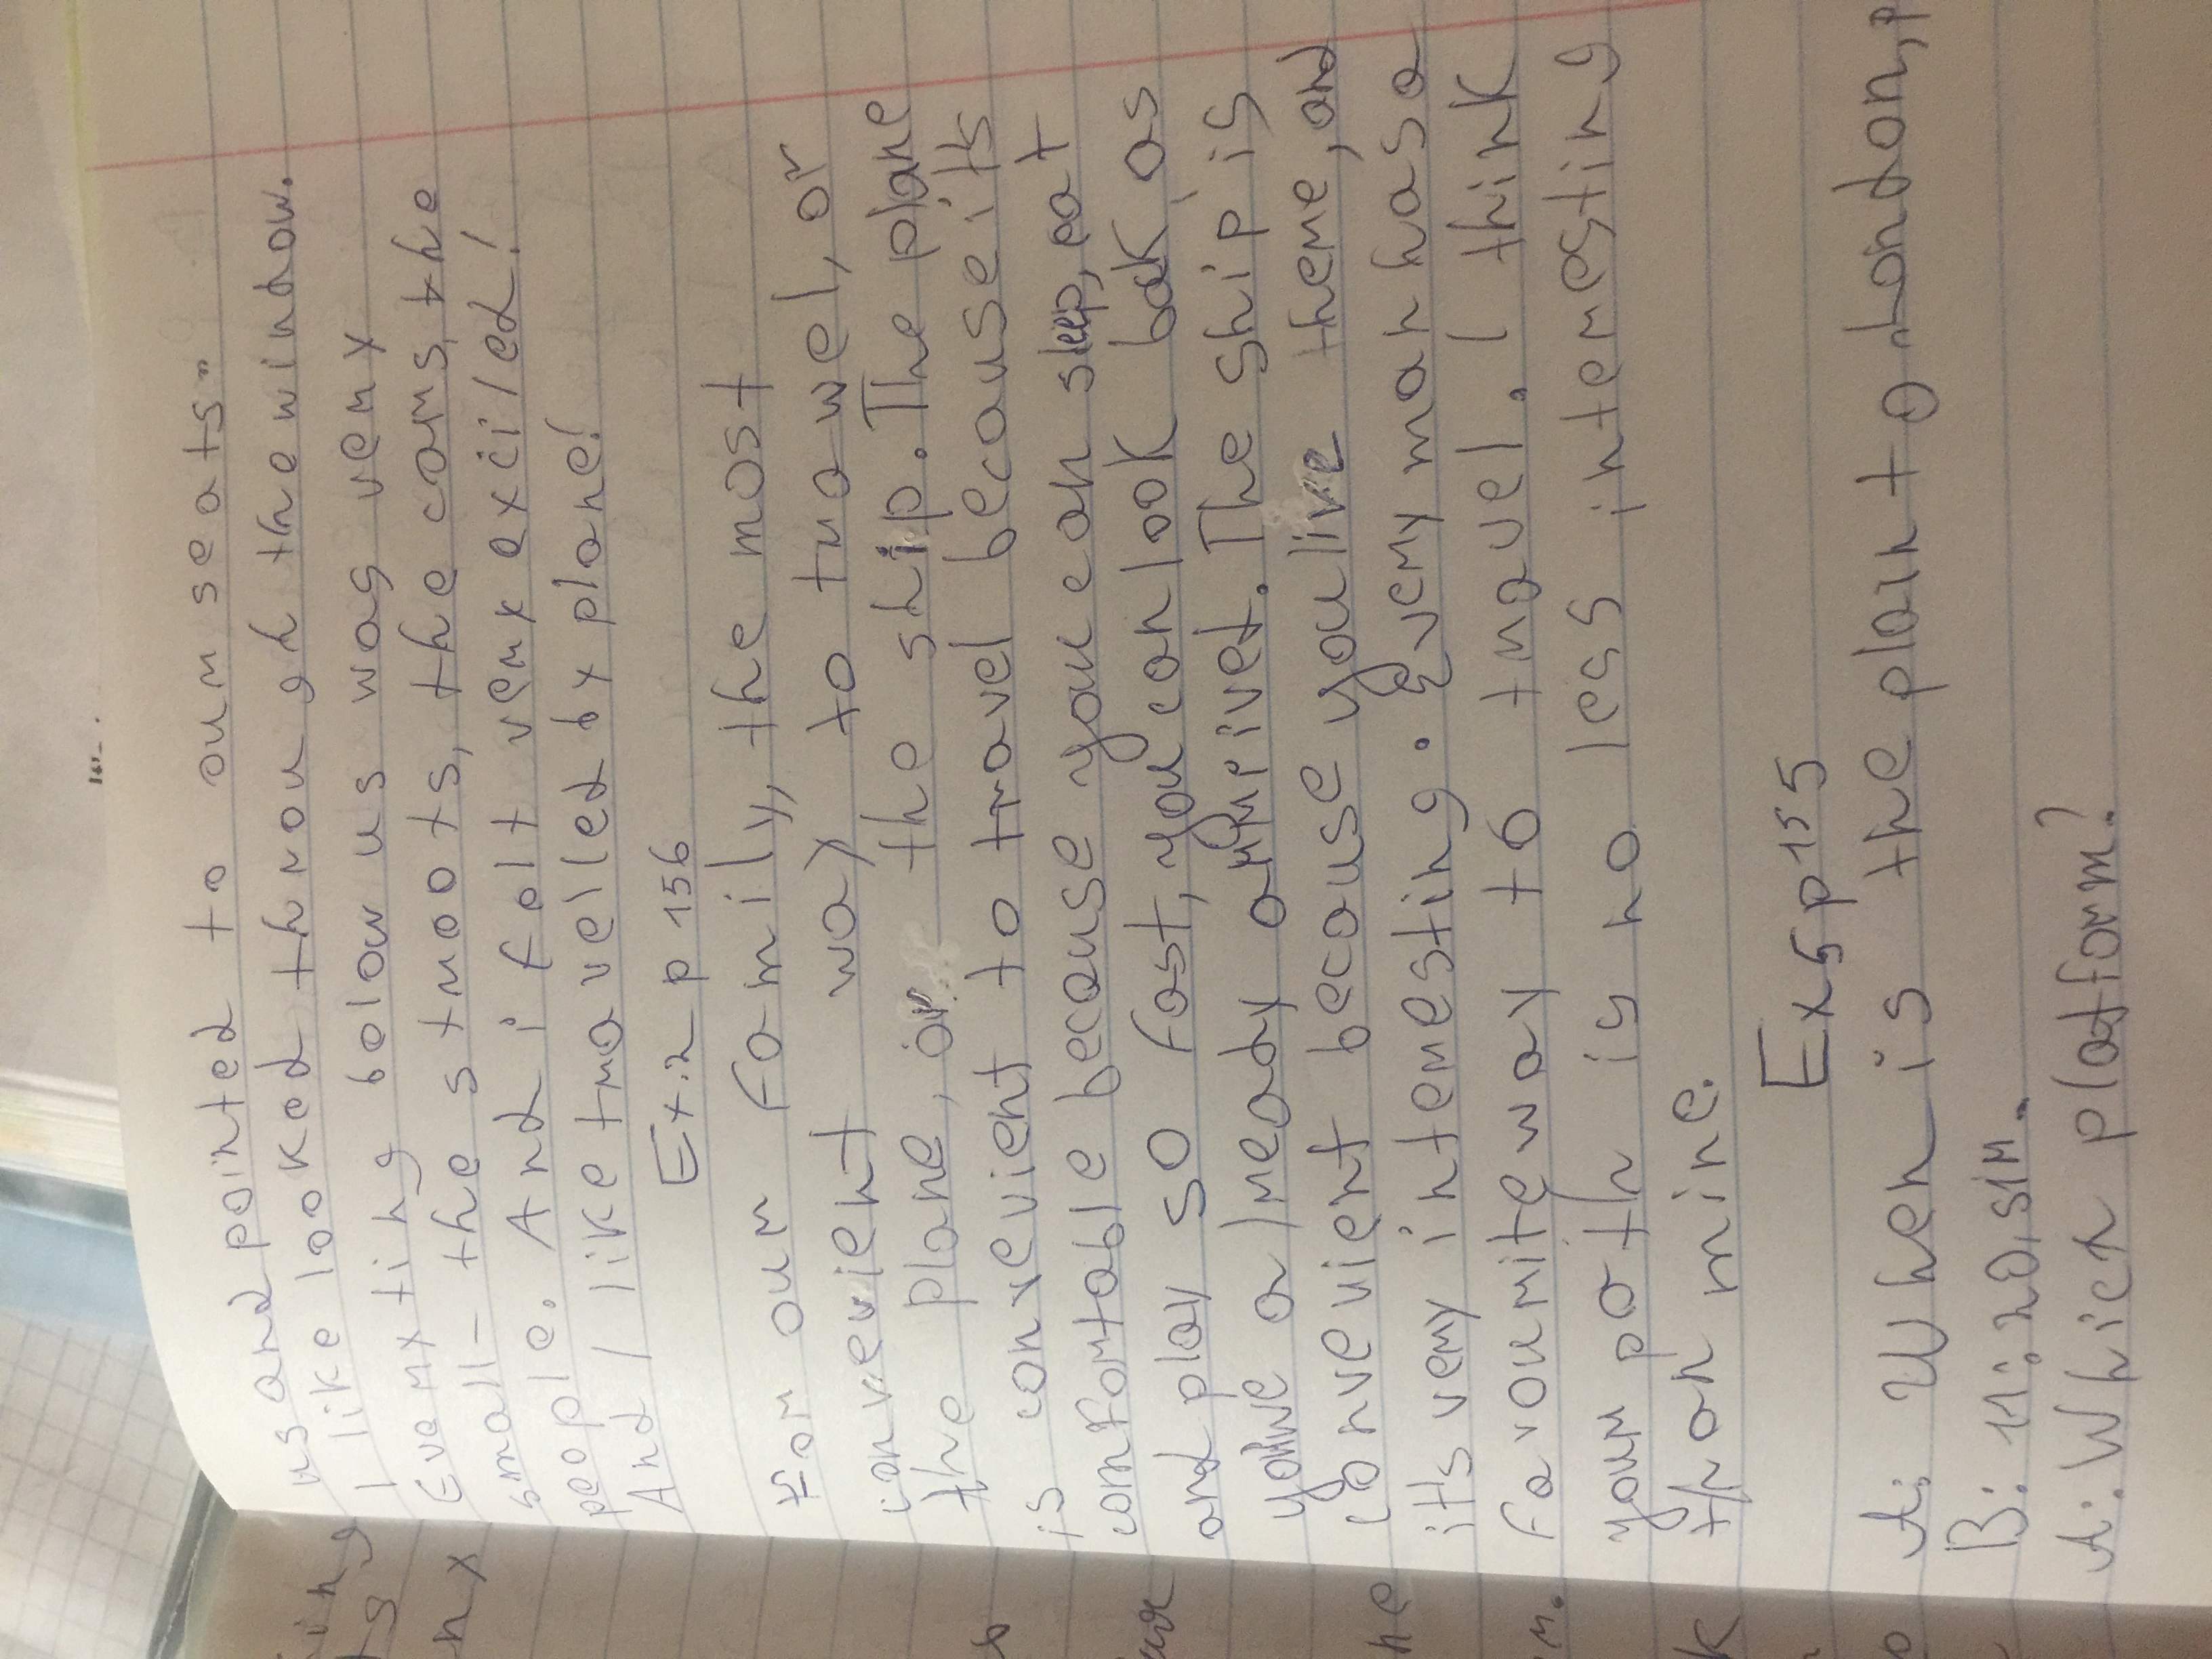 us and pointed to our seats..
I like looked through the window.
Everything below us was very
small - the streets, the cars, the
people. And i felt very exci/ed!
And I like travelled by plane!
Ex.2 p 156
For our family, the most
convenient way to trawel, or
the plane, or the ship. The plane
is convevient to travel because its
comfortable because you can sleep, eat
and play so fast, you can look bak, as
youwe already arrivet. The ship is
convevient because you live there, and
its very interesting. Every man has a
favourite way to travel. I think
your path is no less interesting
than mine.
Ex5p155
A: When is the plan to London, p
B: 11:20, sir.
A: Which platform?